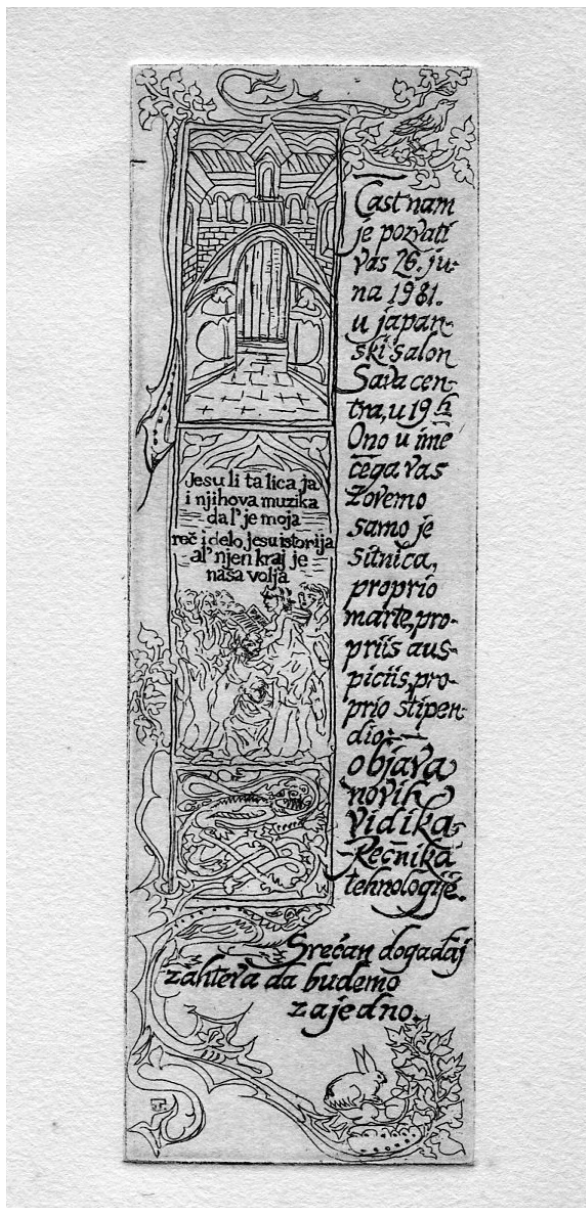 Čast nam
je pozvati
vas 26. ju-
na 1981.
u japan-
ski salon
Sava cen-
tra, u 19 h
Ono u ime
čega vas
zovemo
samo je
sitnica,
proprio
marte, pro-
priis aus-
piciis, pro-
prio stipen-
dio: —
objava
novih
Vidika-
Rečnika
tehnologije.
Jesu li ta lica ja
i njihova muzika
da l' je moja
reč i delo, jesu istorija
al' njen kraj je
naša volja
Srećan događaj
zahteva da budemo
zajedno.